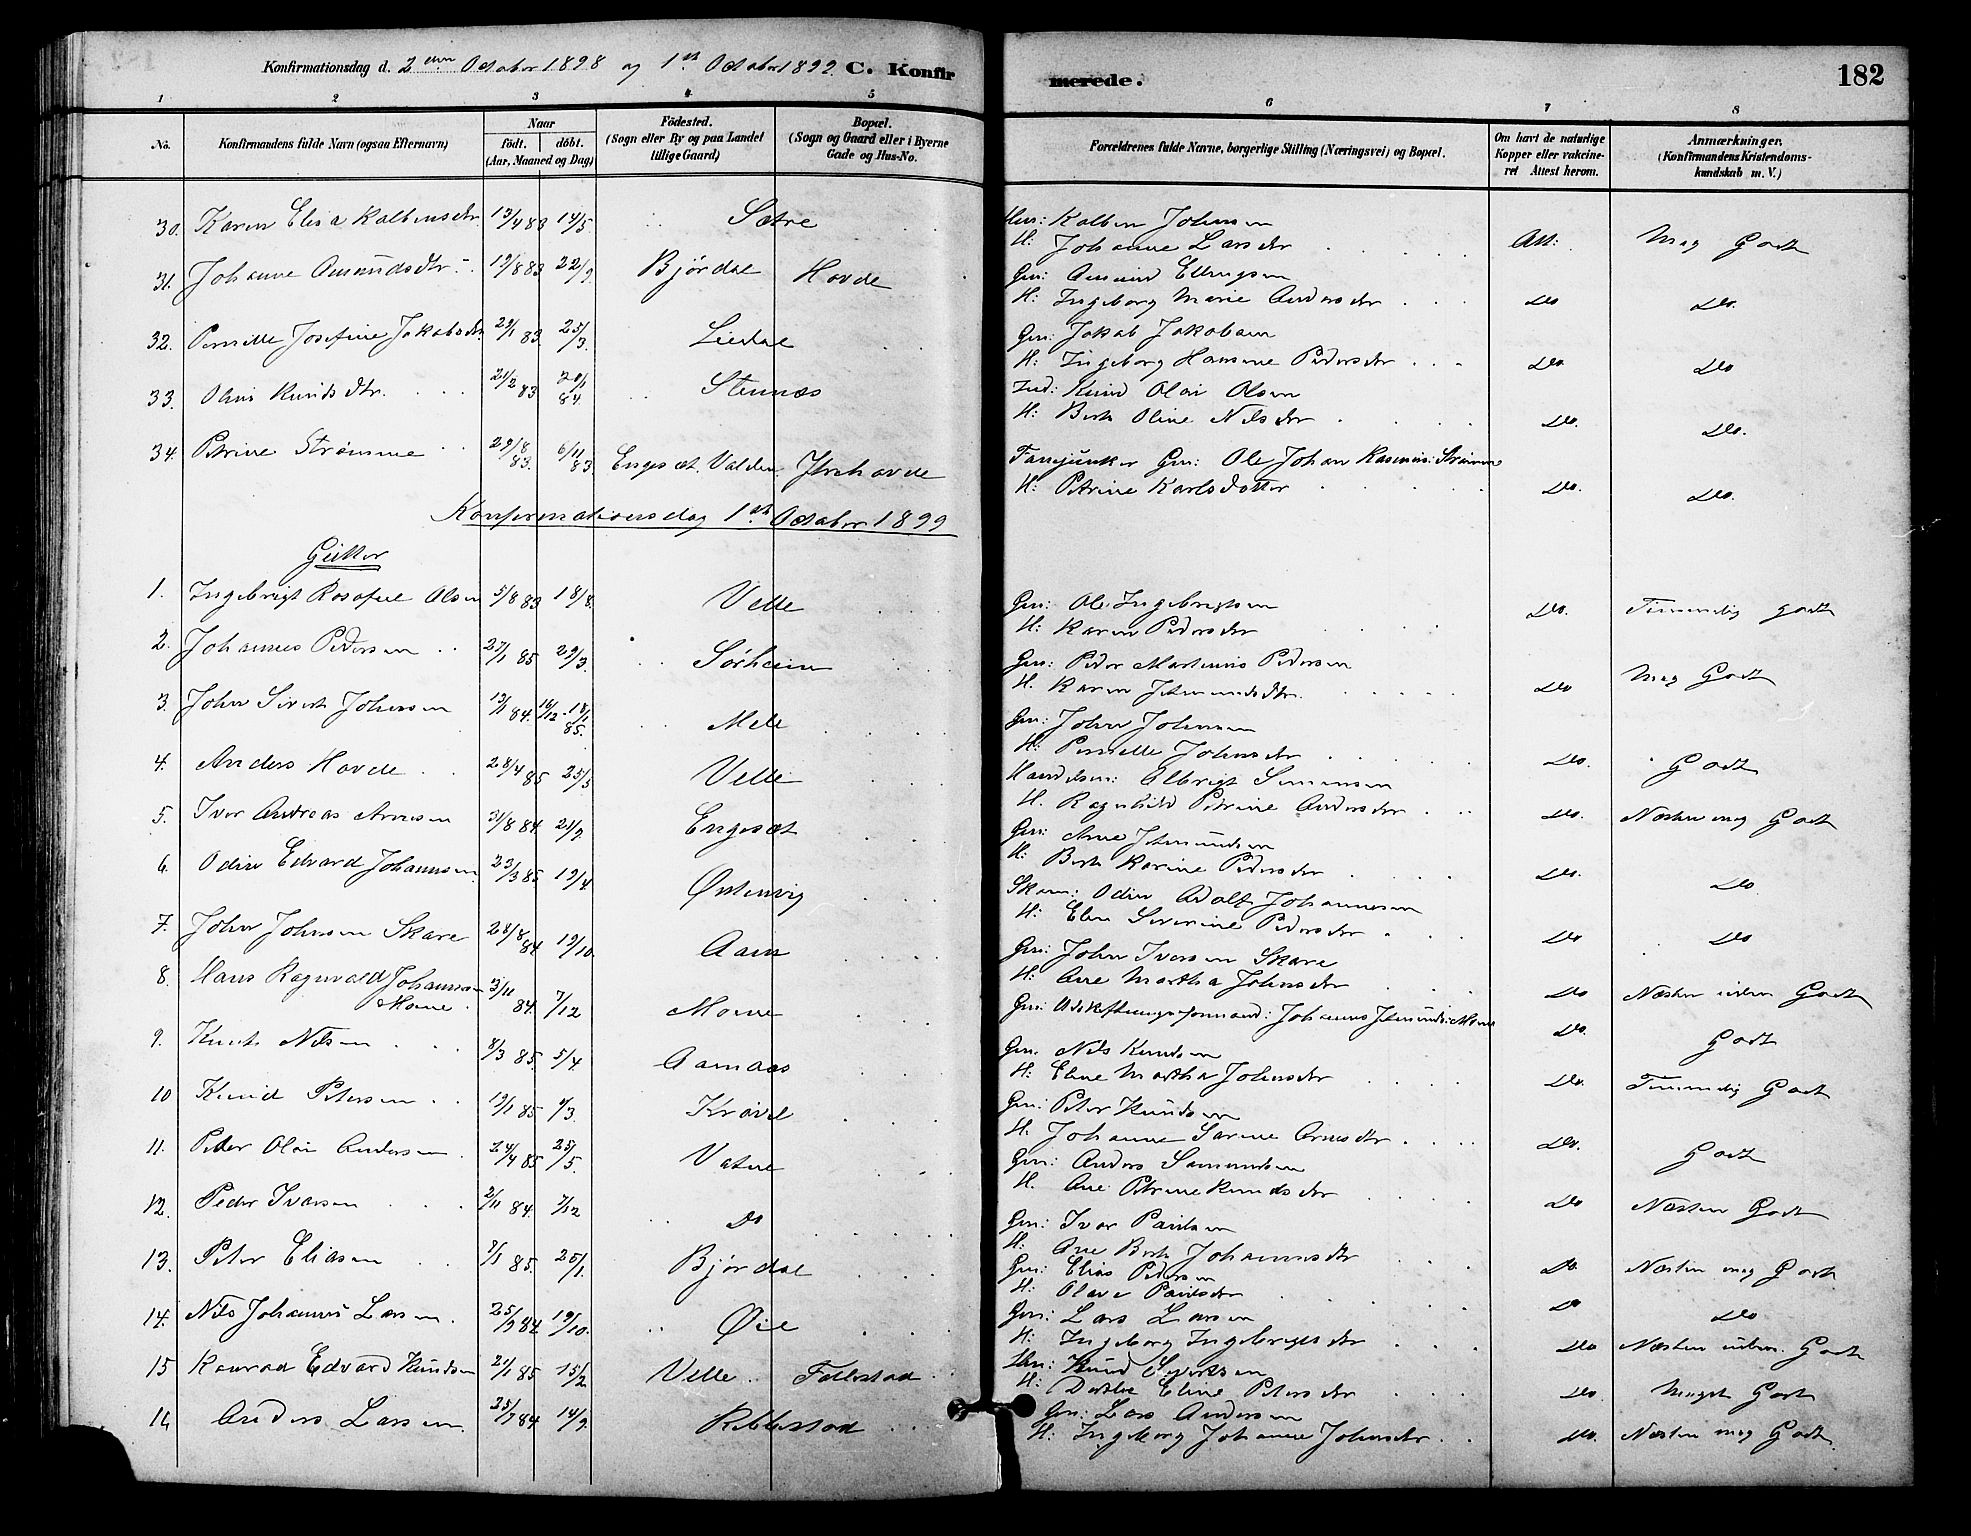 Konfirmationsdag d. 2den October 1898 og 1ste October 1899. C. Konfirmerede. 182
1 2 3 4 5 6 7 8
No. Konfirmandens fulde Navn (ogsaa Efternavn) Naar födt. döbt. (Aar, Maaned og Dag) Födested. (Sogn eller By og paa Landet tillige Gaard) Bopæl. (Sogn og Gaard eller i Byerne Gade og Hus-No. Forældrenes fulde Navne, borgerlige Stilling (Næringsvei) og Bopæl. Om havt de naturlige Kopper eller vakcineret Attest herom. Anmærkninger. (Konfirmandens Kristendomskundskab m. V.)
30. Karen Elisa Kolbensdtr. 13/4 83 14/5 Sætre Kolben Johnsen
H: Johanne Larsdtr Att: Meg Godt
31. Johanne Amundsdtr. 19/8 83 22/9 Bjørdal Hovde Gm: Amund Ellingsen
H: Ingeborg Marie Andersdtr Do Do.
32. Pernille Josefine Jakobsdtr. 29/1 83 25/3. Liedal Gm: Jakob Jakobsen
H: Ingeborg Hansine Pedersdtr Do. Do
33. Olina Knudsdtr. 21/2 83 20/1 84. Stennæs Ind: Knud Olai Olsen
H: Berte Oline Nilsdtr Do. Do.
34. Petrine Strømme 29/8 83. 6/11 83. Engeset. Valden. Ytrehovde Fanejunker Gm: Ole Johan Rasmus: Strømme
H: Petrine Karlsdatter Do. Do.
Konfirmationsdag 1ste October 1899
Gutter
1. Ingebrigt Rasofiel Olsen 5/8 83 18/8. Velle Gm: Ole Ingebrigtsen
H: Karen Pedersdtr Do. Temmelig godt
2. Johannes Pedersen 27/1 85 29/3. Sørheim Gm: Peder Martinus Pedersen
H. Karen Jetmundsdtr. Do Meg Godt
3. John Sivert Johnsen 19/11 84. 14/12 - 18/1 85. Mele Gm: John Johnsen
H: Pernille Johnsdtr Do. Godt
4. Anders Hovde 28/4 85 25/5 Velle Handelsm: Olbrigt Simonsen
H. Ragnhild Petrine Andersdtr Do. Næsten meg Godt
5. Iver Andreas Arnesen 31/8 84. 21/9. Engeset Gm: Arne Jetmundsen
H: Berte Karine Pedersdtr Do. Do
6. Odin Edvard Johannesen 23/3 85 19/4 Østenvig Odin Adolf Johannesen
H: Eline Severine Pedersdtr Do Do
7. John Johnsen Skare 28/8 84 19/10. Aam Gm: John Iversen Skare
H: Ane Martha Johnsdtr Do Næsten inden Godt
8. Hans Ragnvald Johannesen Moene. 3/11 84. 7/12 Moene Gm: Udskiftningsformand: Johannes Jetmunds: Moene Do. Godt
9. Knut Nilsen 8/3 85. 5/4 Aamaas Gm. Nils Knudsen
H: Eline Martha Johnsdtr Do. Temmelig Godt
10 Knud Petersen 19/1 85 9/3. Krøvel Gm: Peter Knudsen
H. Johanne Sarine Arnesdtr Do. Godt
11. Peder Olai Andersen 24/4 85 25/5. Vatne Gm: Anders Samundsen
H. Ane Petrine Knudsdtr Do Næsten Godt
12. Peder Iversen 2/11 84. 7/12 Do Gm: Ivar Paulsen
H. Ane Berte Johannesdtr Do. Næsten meg Godt
13. Peter Eliasen 3/1 85. 25/1. Bjørdal Gm: Elias Pedersen
H: Olave Paulsdtr Do Do
14. Nils Johannes Larsen. 25/9 84 19/10. Øie Gm: Lars Larsen
H: Ingeborg Ingebrigtsdtr Do Næsten inden. Godt
15 Konrad Edvard Knudsen 21/1 85 15/2 Velle. Follestad Knud Sivertsen
H: Dorthe Eline Petersdtr Do. Meget Godt
16 Anders Larsen. 25/7 84 14/9. Ribbestad Gm: Lars Andersen
H: Ingeborg Johanne Johnsdtr Do. Næsten meg Godt